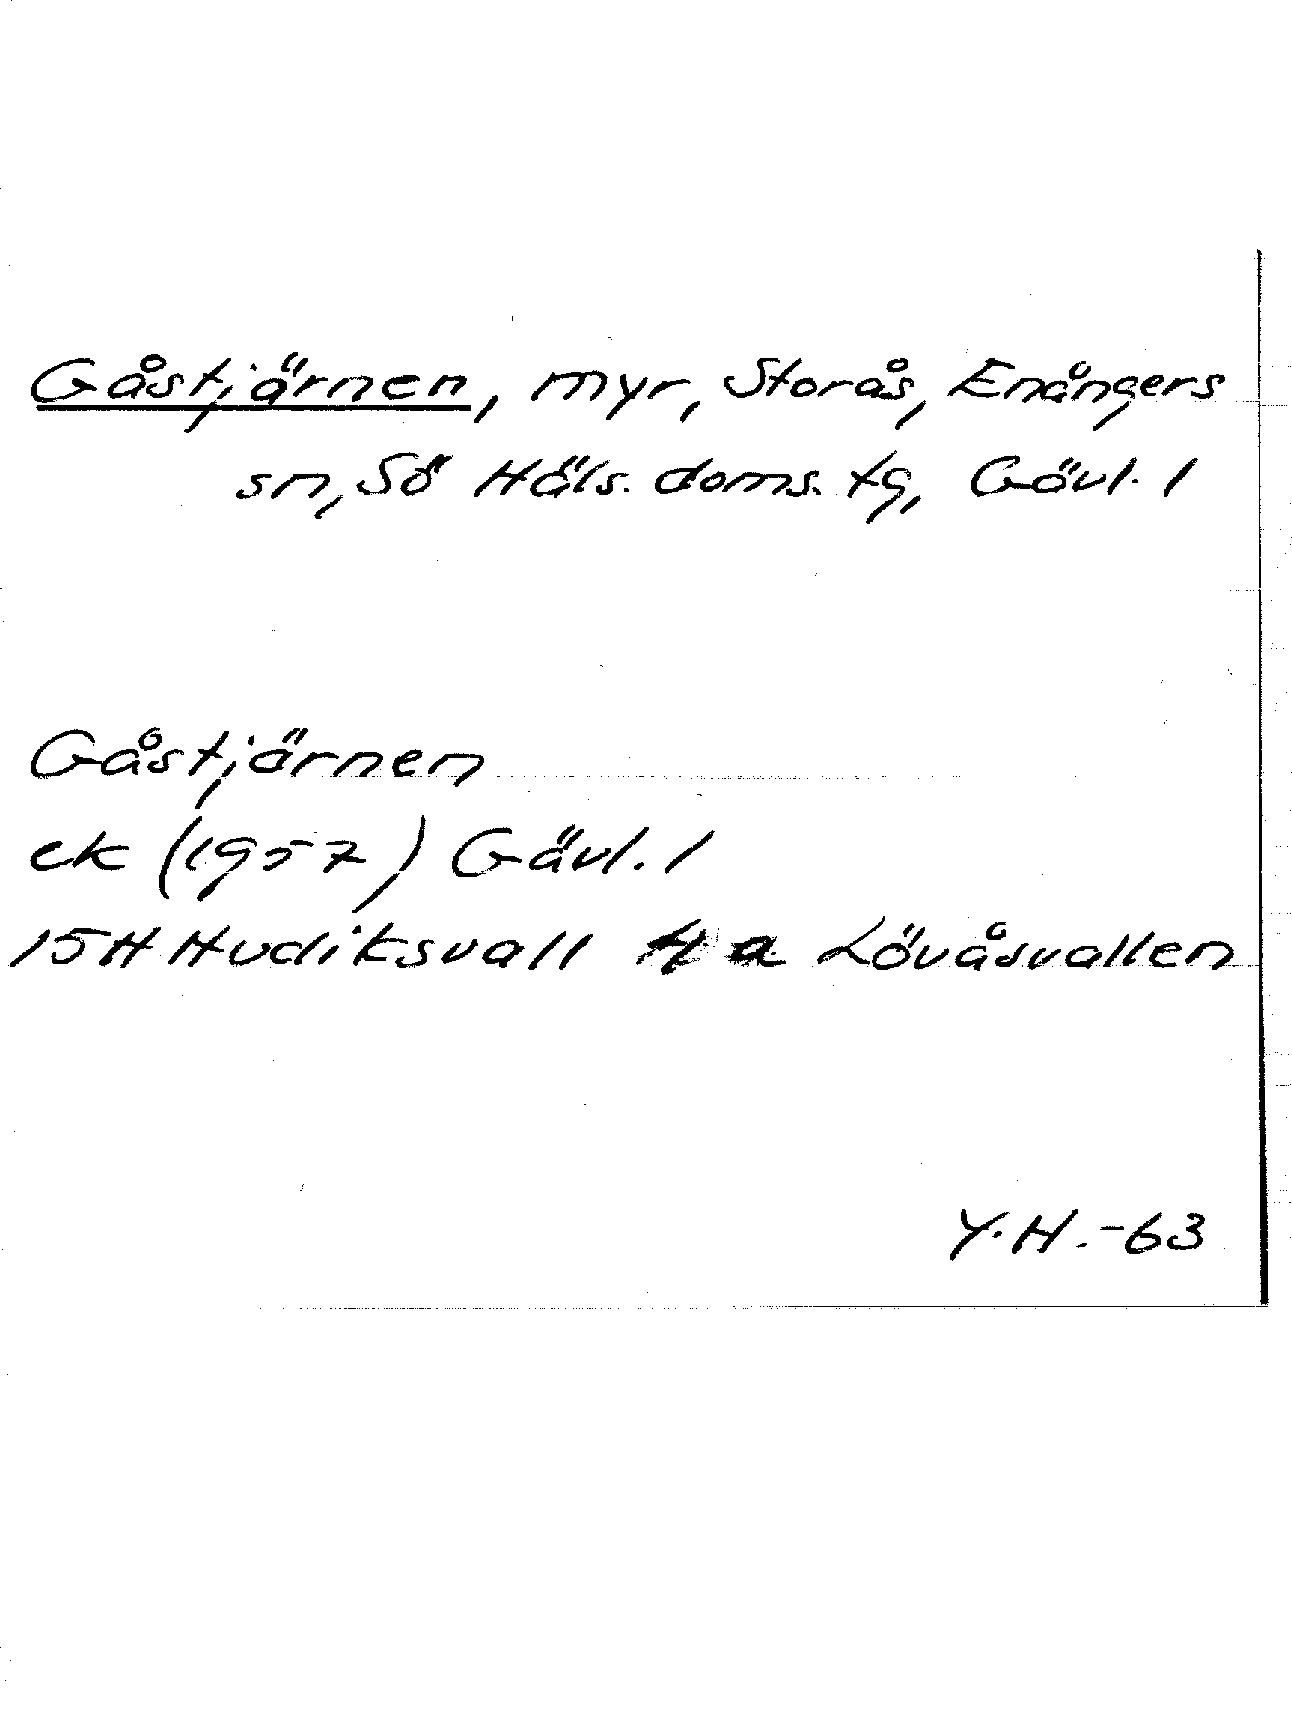 Gåstjärnen, myr, Storås, Enångers
sn, Sö Häls. doms. tg, Gävl. l
Gåstjärnen
ek (1957) Gävl. l
15H Hudiksvall 4 a Lövåsvallen
Y.H. -63